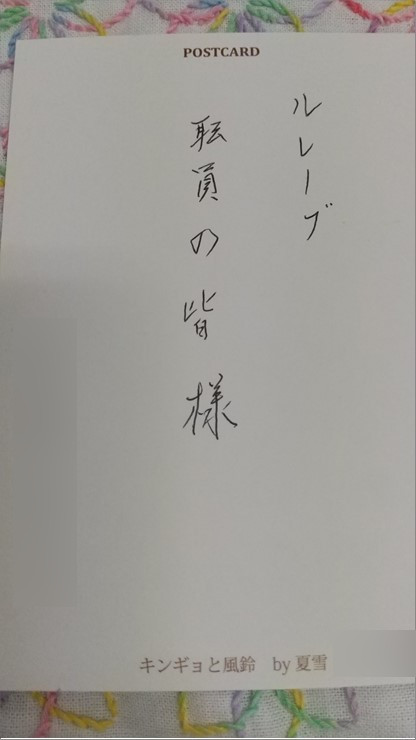 POSTCARD
ルレーブ
耺員の皆様
キンギョと風鈴 by 夏雪